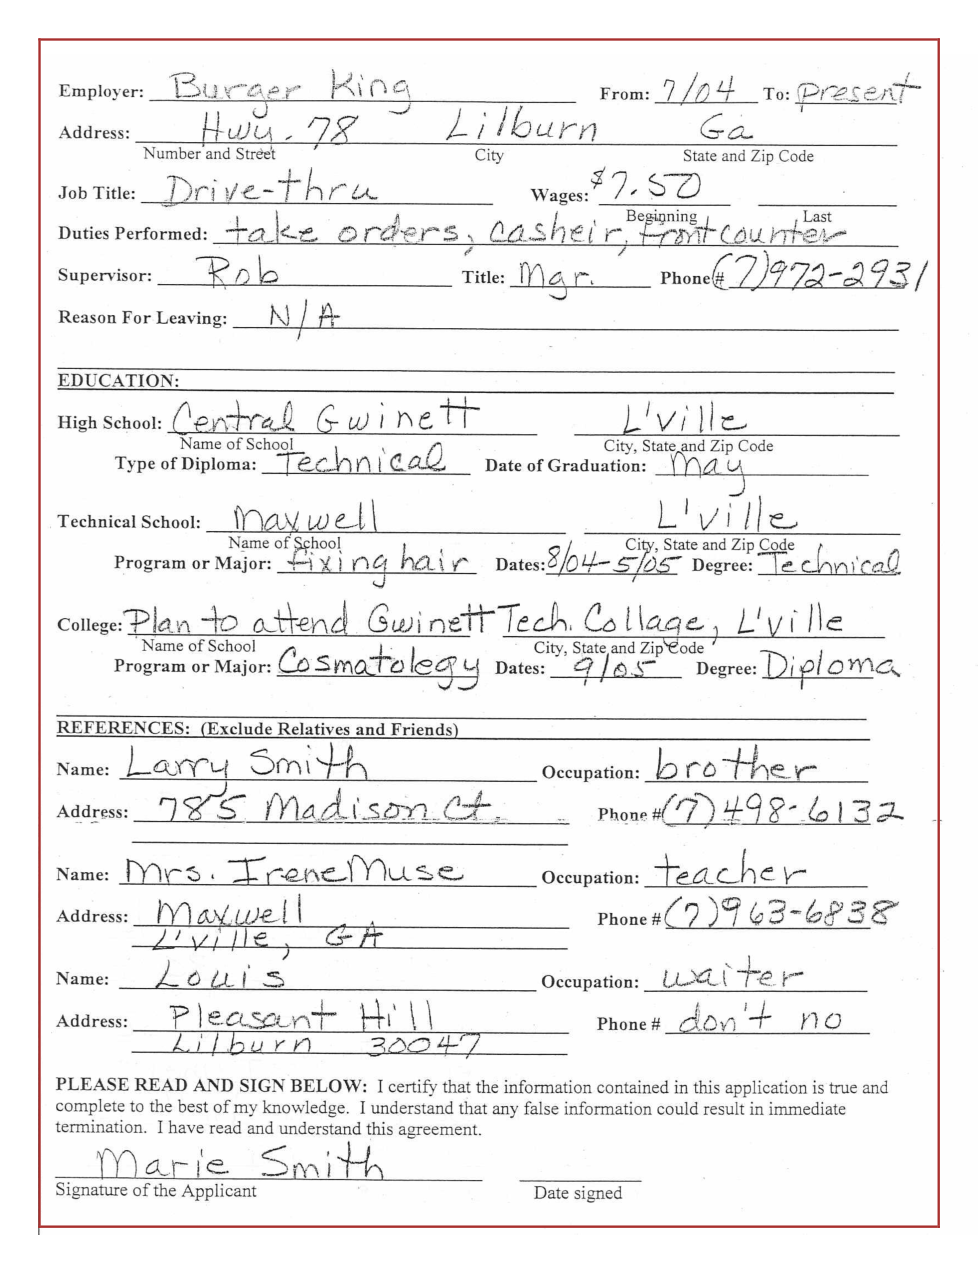 Employer: Burger King From: 7/04 To: present
Address: Hwy. 78 Lilburn Ga
Number and Street City State and Zip Code
Job Title: Drive-thru Wages: $7.50
Beginning Last
Duties Performed: take orders, casheir, front counter
Supervisor: Rob Title: Mgr. Phone # (7)972-2931
Reason For Leaving: N/A
EDUCATION:
High School: Central Gwinett L'ville
Name of School City, State and Zip Code
Type of Diploma: Technical Date of Graduation: May
Technical School: Maxwell L'ville
Name of School City, State and Zip Code
Program or Major: fixing hair Dates: 8/04-5/05 Degree: Technical
College: Plan to attend Gwinett Tech. Collage, L'ville
Name of School City, State and Zip Code
Program or Major: Cosmatolegy Dates: 9/05 Degree: Diploma
REFERENCES: (Exclude Relatives and Friends)
Name: Larry Smith Occupation: brother
Address: 785 Madison Ct. Phone # (7)498-6132
Name: Mrs. Irene Muse Occupation: teacher
Address: Maxwell Phone # (7)963-6838
L'ville, GA
Name: Louis Occupation: waiter
Address: Pleasant Hill Phone # don't no
Lilburn 30047
PLEASE READ AND SIGN BELOW: I certify that the information contained in this application is true and
complete to the best of my knowledge. I understand that any false information could result in immediate
termination. I have read and understand this agreement.
Marie Smith
Signature of the Applicant Date signed